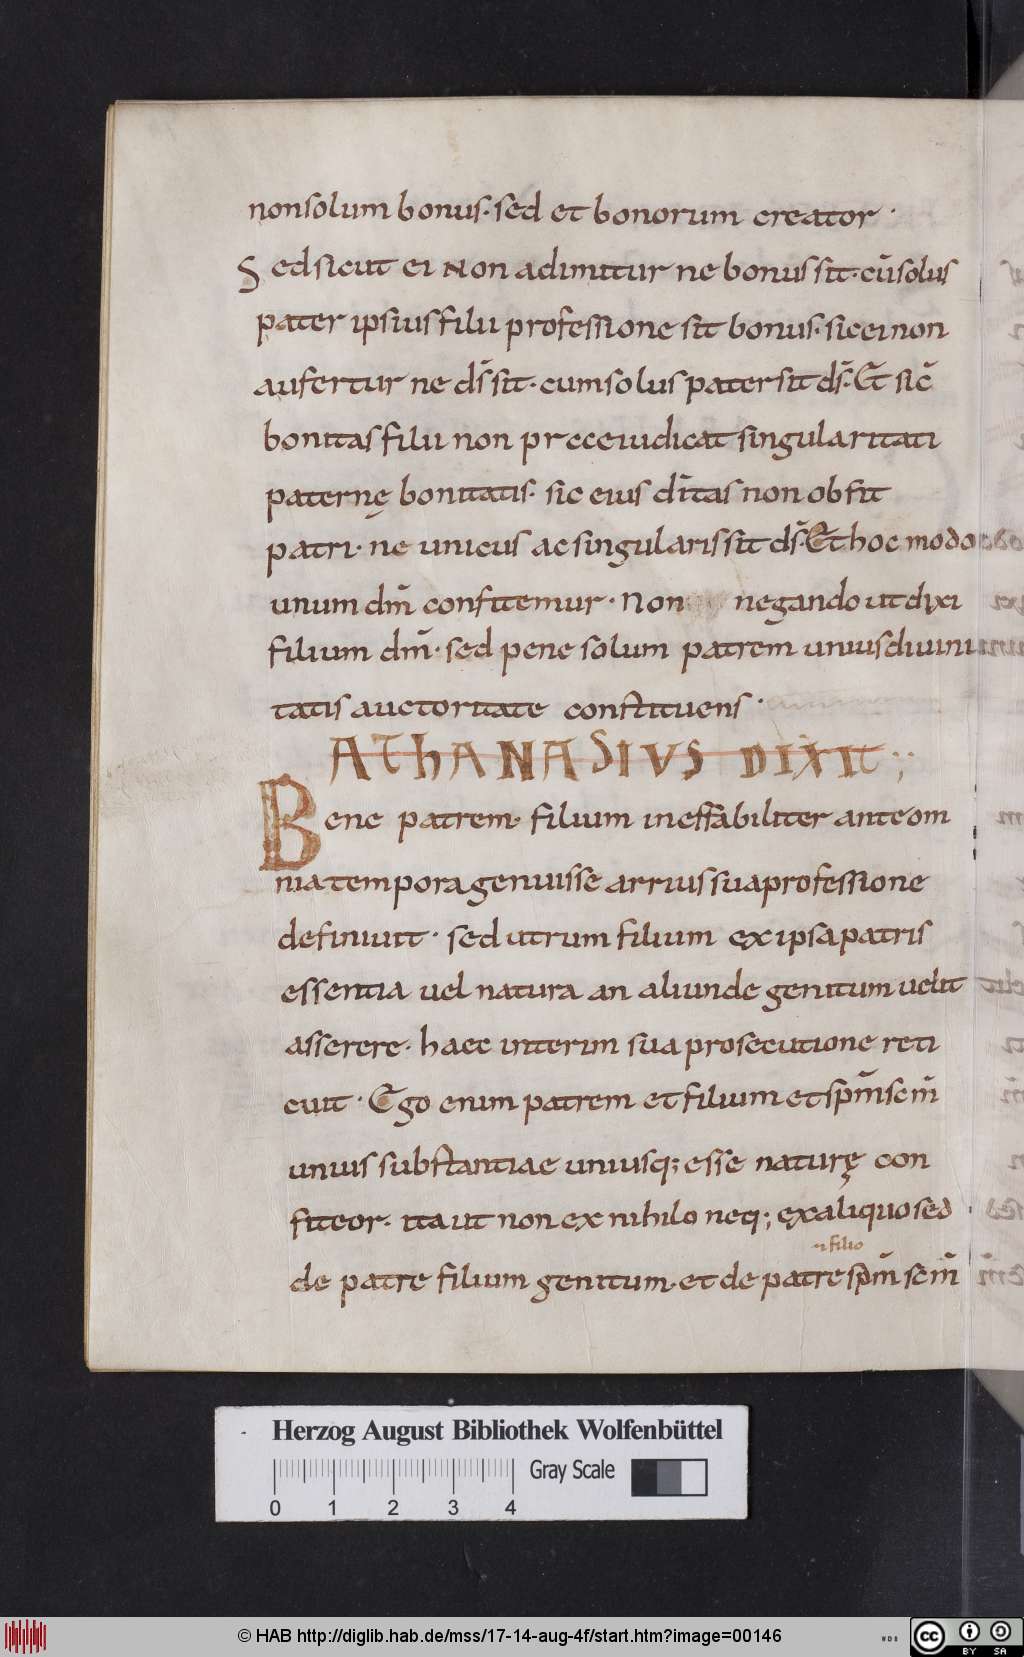 nonsolum bonus· sed et bonorum creator ·
Sedsicut ei Non adimitur ne bonus sit· cū solus
pater ipsius filii professione sit bonus· sic ei non
aufertur ne ds̄ sit· cum solus pater sit ds̄· Et sic̄
bonitas filii non preceiudicat singularitati
paternę bonitatis· sic eius dītas non obfit
patri· ne unicus ac singularis sit ds̄· Et hoc modo
unum dm̄ confitemur· Non negando ut dixi
filium dm̄· sed pene solum patrem unius diuini
tatis auctoritate constituens ·
ATHANASIVS DIXIT ·,·
Bene patrem· filium ineffabiliter ante om
nia tempora genuisse arrius sua professione
definiuit · sed utrum filium ex ipsa patris
essentia uel natura an aliunde genitum uelit
asserere· haec interim sua prosecutione reti
cuit · Ego enim patrem et filium et spm̄ scm̄
unius substantiae uniusq; esse naturę con
fiteor· ita ut non ex nihilo neq; ex aliquo sed
filio
de patre filium genitum· et de patre spm̄ scm̄
Herzog August Bibliothek Wolfenbüttel
Gray Scale
0 1 2 3 4
© HAB http://diglib.hab.de/mss/17-14-aug-4f/start.htm?image=00146
WDB
cc BY SA